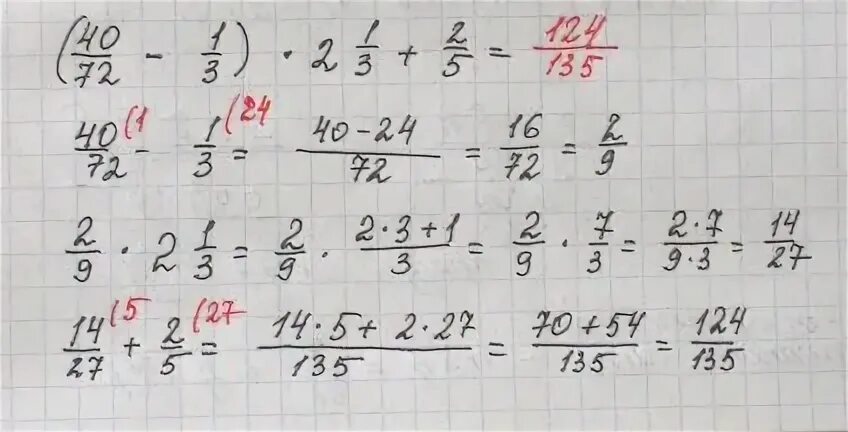 (40/72 - 1/3) · 2 1/3 + 2/5 = 124/135
40/72 (1 - 1/3 (24 = (40-24)/72 = 16/72 = 2/9
2/9 · 2 1/3 = 2/9 · (2·3+1)/3 = 2/9 · 7/3 = (2·7)/(9·3) = 14/27
14/27 (5 + 2/5 (27 = (14·5+2·27)/135 = (70+54)/135 = 124/135